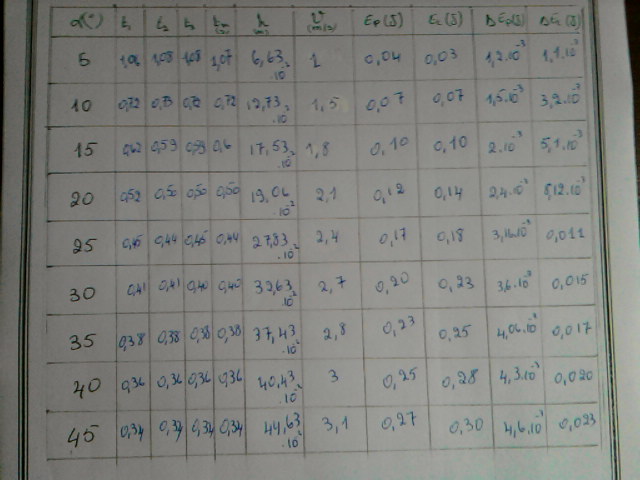 α(°) t₁ t₂ t₃ tm (s) h (m) v (m/s) Ep (J) Ec (J) ΔEp (J) ΔEc (J)
5 1,06 1,08 1,08 1,07 6,63.10⁻² 1 0,04 0,03 1,2.10⁻³ 1,1.10⁻³
10 0,72 0,73 0,72 0,72 12,73.10⁻² 1,5 0,07 0,07 1,5.10⁻³ 3,2.10⁻³
15 0,62 0,59 0,59 0,6 17,53.10⁻² 1,8 0,10 0,10 2.10⁻³ 5,1.10⁻³
20 0,52 0,50 0,50 0,50 19,06.10⁻² 2,1 0,12 0,14 2,4.10⁻³ 8,12.10⁻³
25 0,45 0,44 0,45 0,44 27,83.10⁻² 2,4 0,17 0,18 0,011
30 0,41 0,41 0,40 0,40 32,63.10⁻² 2,7 0,20 0,23 3,6.10⁻³ 0,015
35 0,38 0,38 0,38 0,38 37,43.10⁻² 2,8 0,23 0,25 4,06.10⁻³ 0,017
40 0,36 0,36 0,36 0,36 40,43.10⁻² 3 0,25 0,28 4,3.10⁻³ 0,020
45 0,34 0,34 0,34 0,34 44,63.10⁻² 3,1 0,27 0,30 4,6.10⁻³ 0,023